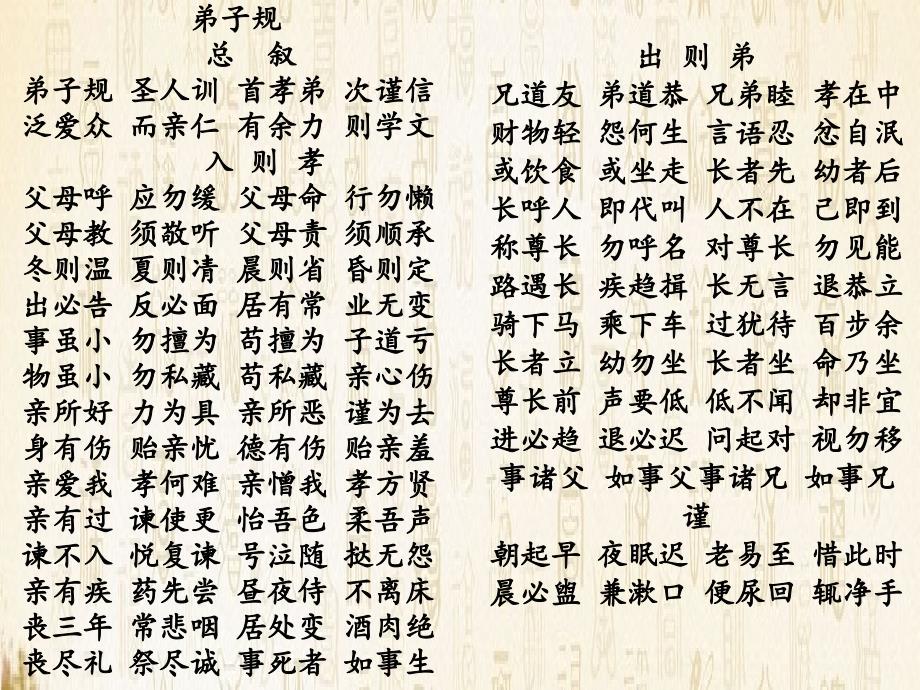 弟子规
总 叙
弟子规 圣人训 首孝弟 次谨信
泛爱众 而亲仁 有余力 则学文
入 则 孝
父母呼 应勿缓 父母命 行勿懒
父母教 须敬听 父母责 须顺承
冬则温 夏则凊 晨则省 昏则定
出必告 反必面 居有常 业无变
事虽小 勿擅为 苟擅为 子道亏
物虽小 勿私藏 苟私藏 亲心伤
亲所好 力为具 亲所恶 谨为去
身有伤 贻亲忧 德有伤 贻亲羞
亲爱我 孝何难 亲憎我 孝方贤
亲有过 谏使更 怡吾色 柔吾声
谏不入 悦复谏 号泣随 挞无怨
亲有疾 药先尝 昼夜侍 不离床
丧三年 常悲咽 居处变 酒肉绝
丧尽礼 祭尽诚 事死者 如事生
出 则 弟
兄道友 弟道恭 兄弟睦 孝在中
财物轻 怨何生 言语忍 忿自泯
或饮食 或坐走 长者先 幼者后
长呼人 即代叫 人不在 己即到
称尊长 勿呼名 对尊长 勿见能
路遇长 疾趋揖 长无言 退恭立
骑下马 乘下车 过犹待 百步余
长者立 幼勿坐 长者坐 命乃坐
尊长前 声要低 低不闻 却非宜
进必趋 退必迟 问起对 视勿移
事诸父 如事父事诸兄 如事兄
谨
朝起早 夜眠迟 老易至 惜此时
晨必盥 兼漱口 便尿回 辄净手